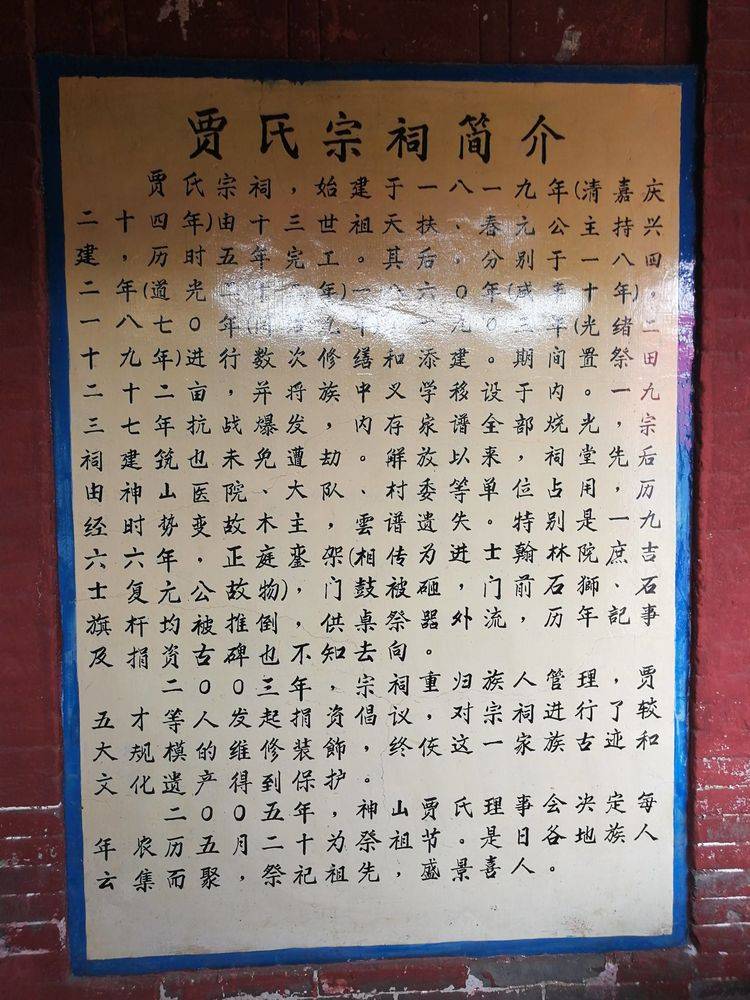 贾氏宗祠简介
贾氏宗祠,始建于一八一九年(清嘉庆
二十四年)由三世祖天扶、春元公主持兴
建,历时五十年完工。其后,分别于一八四
二年(道光二十年)一八六〇年(咸十年),
一八七〇年(同九年)一九〇三年(光绪二
十九年)进行数次修缮和添建。期间置祭田
二十二亩,并将族中义学移设于内。一九
三七年抗战爆发,内存家谱全部烧光,宗
祠建筑也未免遭劫。解放以来,祠堂先后
由神山医院、大队、村委等单位占用,历
经时势变故,木主,雲谱遗失。特别是一九
六六年,正庭銮架(相传为进士翰林院庶吉
士复元公故物),门鼓被砸,门前石獅、石
旗杆均被推倒,供桌祭器外流,历年記事
及捐资古碑也不知去向。
二〇〇三年,宗祠重归族人管理,贾
五才等人发起捐资倡议,对宗祠进行了较
大规模的维修装飾,终使这一家族古迹和
文化遗产得到保护。
二〇〇五年,神山贾氏理事会决定每
年农历五月二十为祭祖节。是日各地族人
云集而聚,祭祀祖先,盛景喜人。